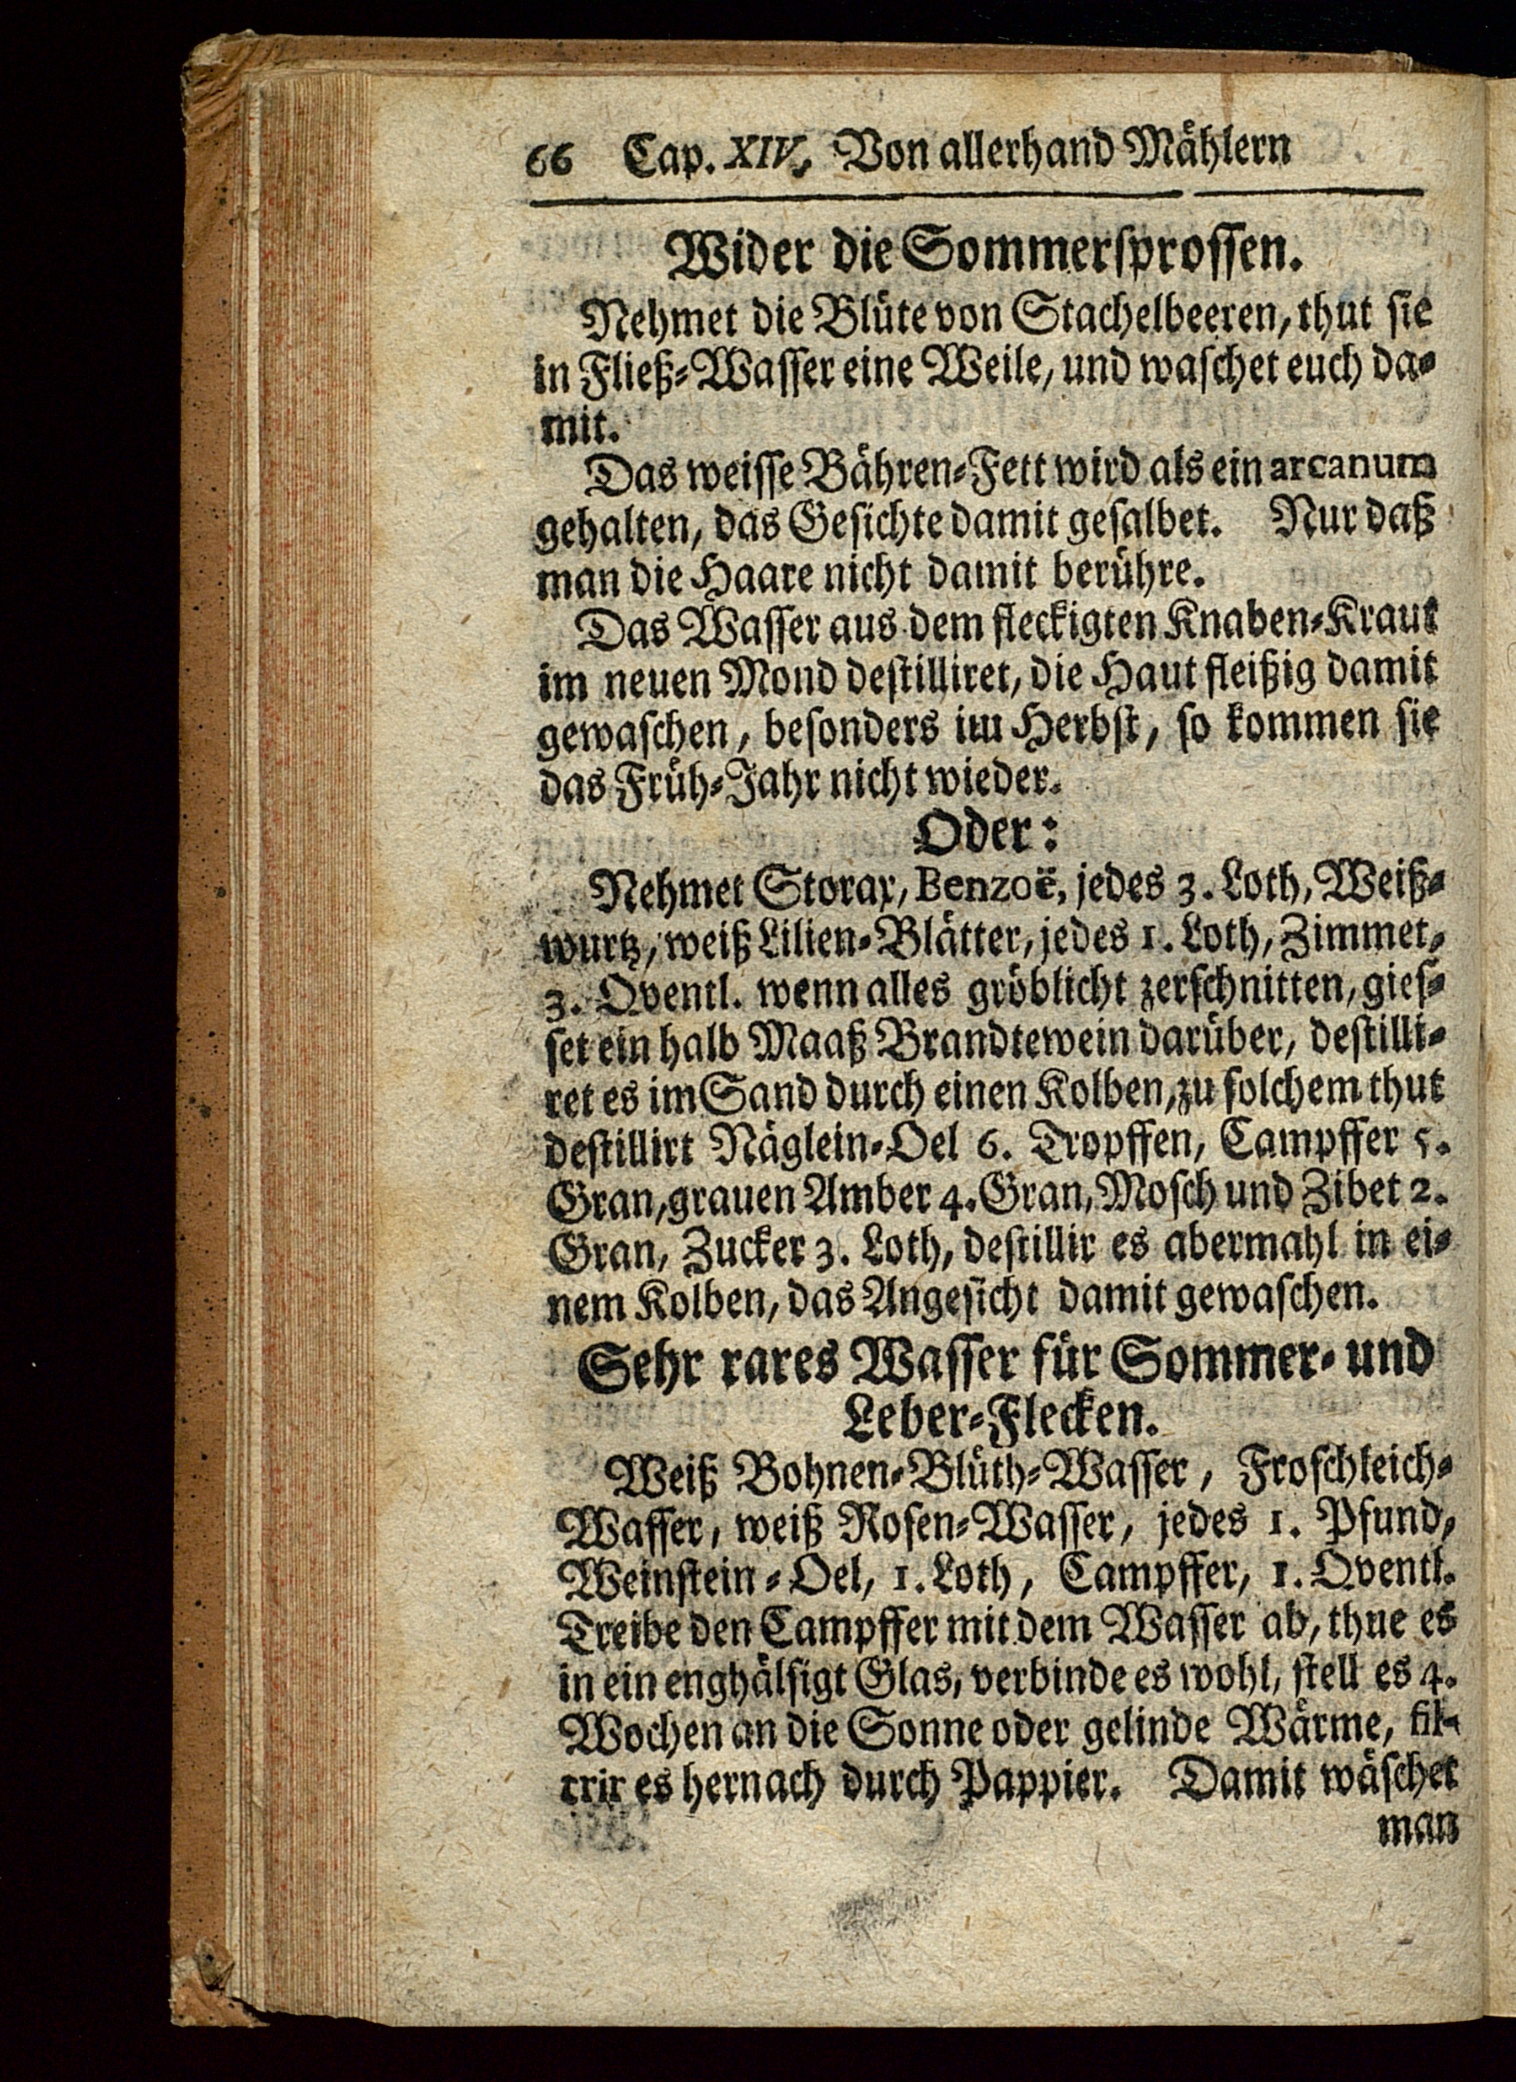 66 Cap. XIV. Von allerhand Mählern
Wider die Sommersprossen.
Nehmet die Blüte von Stachelbeeren, thut sie
in Fließ-Wasser eine Weile, und waschet euch da-
mit.
Das weisse Bähren-Fett wird als ein arcanum
gehalten, das Gesichte damit gesalbet. Nur daß
man die Haare nicht damit berühre.
Das Wasser aus dem fleckigten Knaben-Kraut
im neuen Mond destilliret, die Haut fleißig damit
gewaschen, besonders im Herbst, so kommen sie
das Früh-Jahr nicht wieder.
Oder:
Nehmet Storax, Benzoë, jedes 3. Loth, Weiß-
wurtz, weiß Lilien-Blätter, jedes 1. Loth, Zimmet,
3. Qventl. wenn alles gröblicht zerschnitten, gies-
set ein halb Maaß Brandtewein darüber, destilli-
ret es im Sand durch einen Kolben, zu solchem thut
destillirt Näglein-Oel 6. Tropffen, Campffer 5.
Gran, grauen Amber 4. Gran, Mosch und Zibet 2.
Gran, Zucker 3. Loth, destillir es abermahl in ei-
nem Kolben, das Angesicht damit gewaschen.
Sehr rares Wasser für Sommer- und
Leber-Flecken.
Weiß Bohnen-Blüth-Wasser, Froschleich-
Wasser, weiß Rosen-Wasser, jedes 1. Pfund,
Weinstein-Oel, 1. Loth, Campffer, 1. Qventl.
Treibe den Campffer mit dem Wasser ab, thue es
in ein enghälsigt Glas, verbinde es wohl, stell es 4.
Wochen an die Sonne oder gelinde Wärme, fil-
trir es hernach durch Pappier. Damit wäschet
man